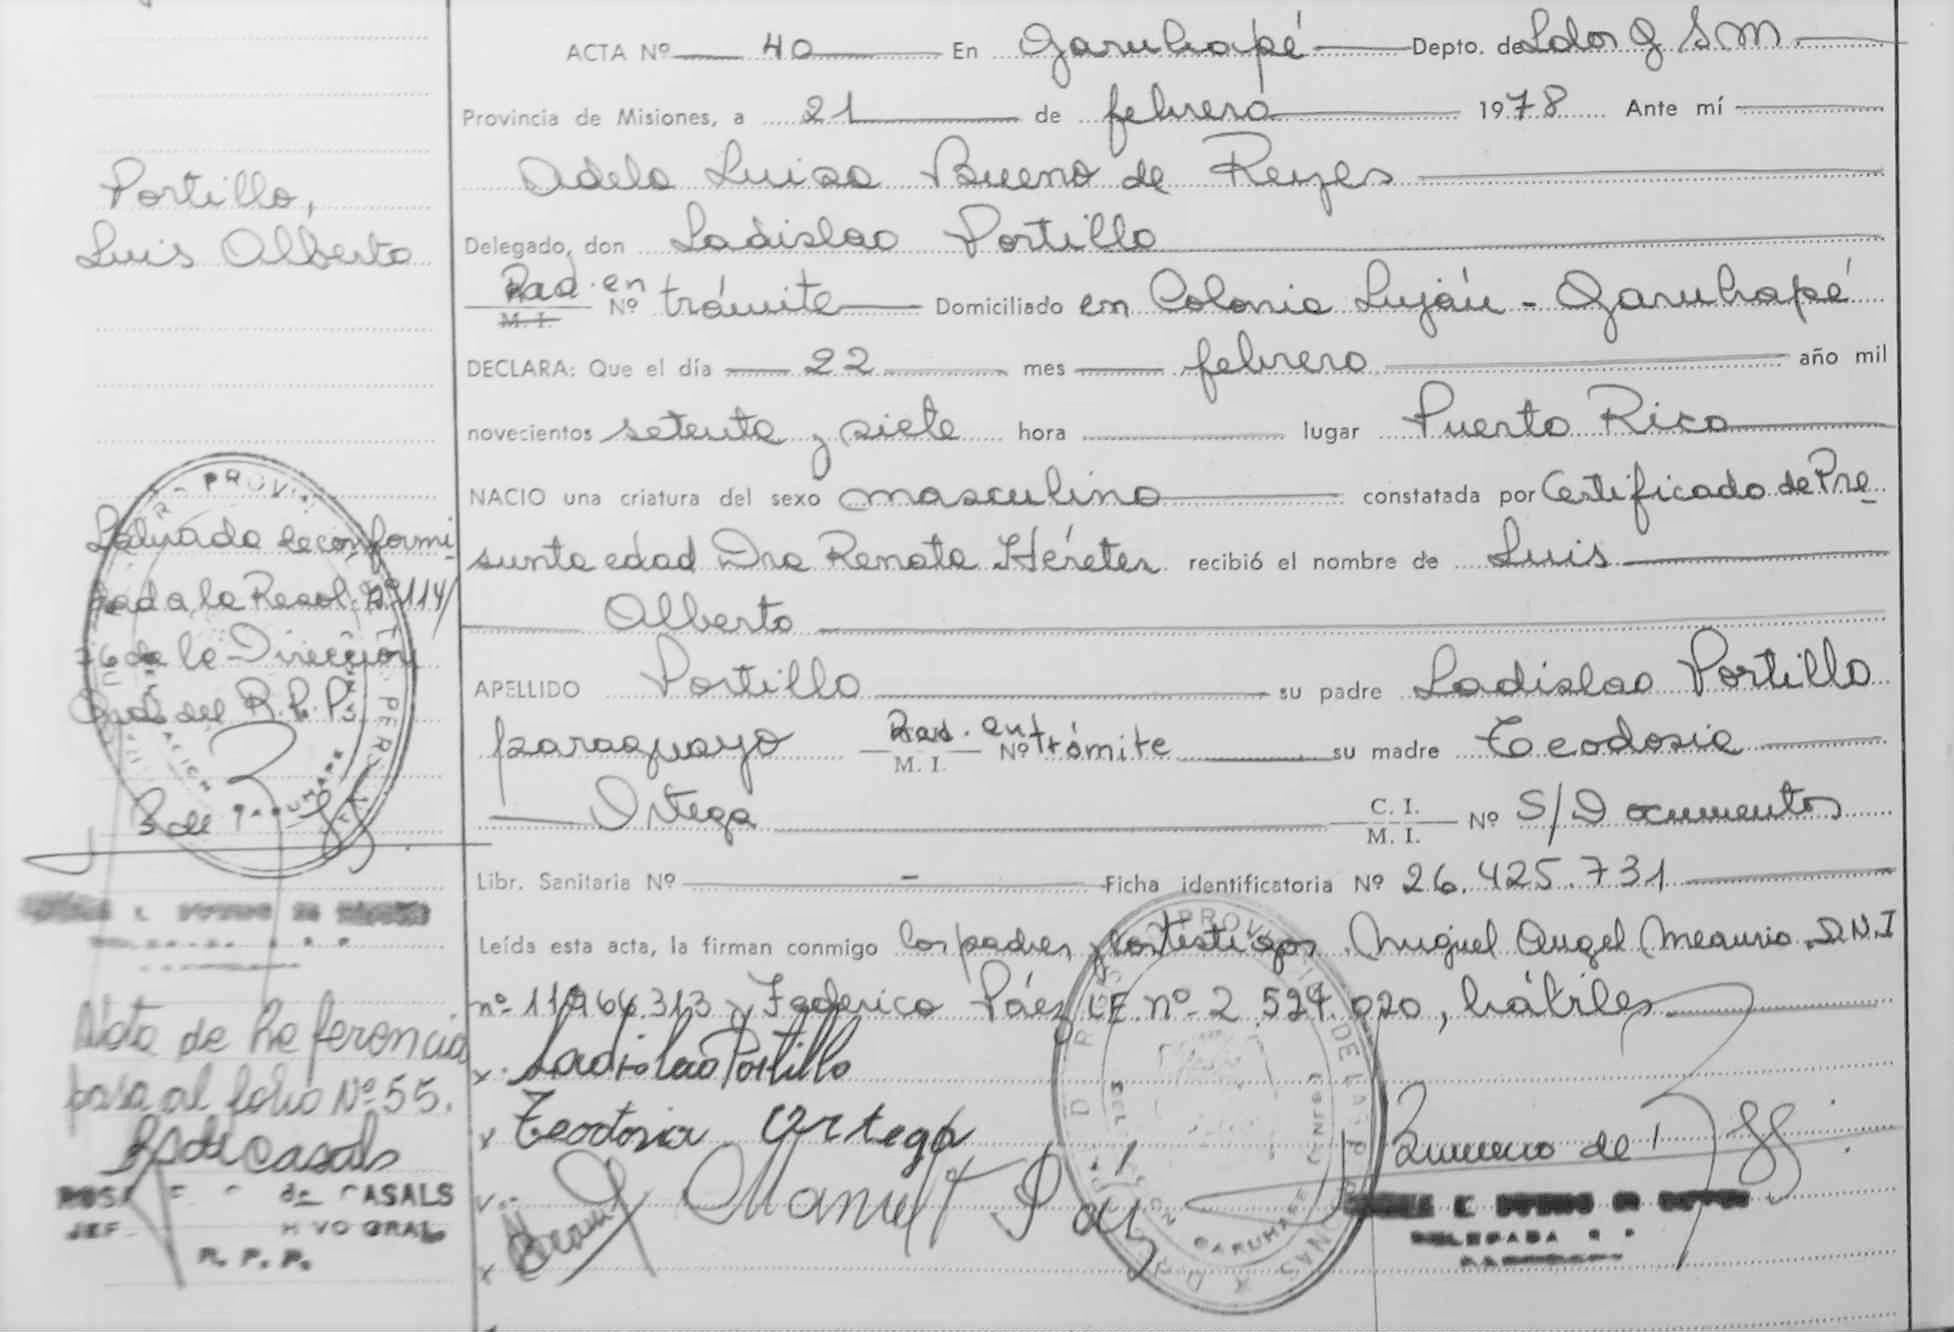 ACTA Nº 40 En Garuhapé Depto. de Ldor G S M.
Provincia de Misiones, a 21 de febrero 1978 Ante mí
Adela Luisa Bueno de Reyes
Delegado, don Ladislao Portillo
Rad. en
M. I. Nº trámite Domiciliado en Colonia Luján - Garuhapé
DECLARA: Que el día 22 mes febrero año mil
novecientos setenta y siete hora lugar Puerto Rico
NACIO una criatura del sexo masculino constatada por Certificado de Pre
sunta edad Dra Renata Héreter recibió el nombre de Luis
Alberto
APELLIDO Portillo su padre Ladislao Portillo
paraguayo Rad. en M. I. Nº trámite su madre Teodosia
Ortega C. I. M. I. Nº S/Documentos
Libr. Sanitaria Nº - Ficha identificatoria Nº 26.425.731
Leída esta acta, la firman conmigo los padres y los testigos Miguel Angel Meaurio D.N.I
nº y Federico Páez LE nº 2.527.020, hábiles
x Ladislao Portillo
x Teodosia Ortega
Manuel
GARUHAPE
Portillo,
Luis Alberto
Labrada de conformi
dad a la Resol. Nº 114/
76 de la Dirección
Gral del R.P.P.
Nota de Referencia
pasa al folio Nº 55.
de Casals
ROSA de CASALS
JEF GRAL
R. P. P.